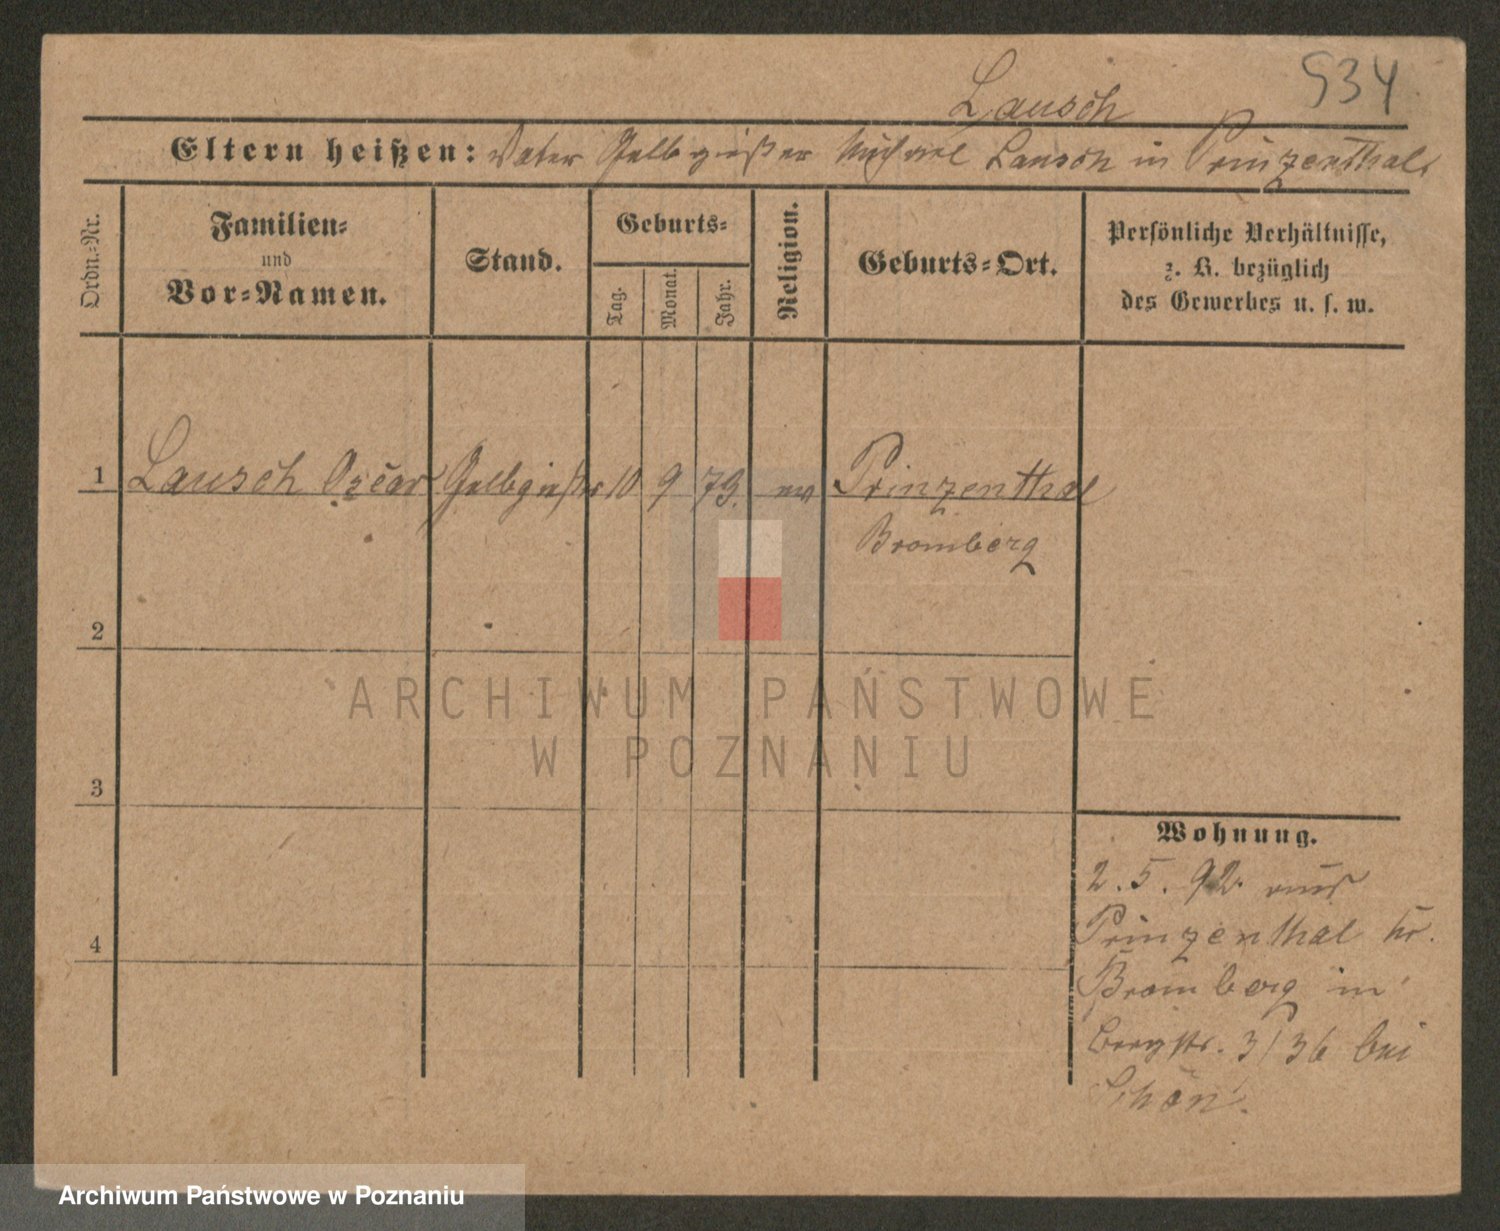 Lausch
934
Eltern heißen: Vater Gelbgießer Michael Lausch in Prinzenthal.
Ordn.-Nr.
Familien-
und
Vor-Namen.
Stand.
Geburts-
Tag.
Monat.
Jahr.
Religion.
Geburts-Ort.
Persönliche Verhältnisse,
z. B. bezüglich
des Gewerbes u. s. w.
1 Lausch Oscar Gelbgießer 10 9 73. ev Prinzenthal
Bromberg
2
3
4
Wohnung.
2. 5. 92. aus
Prinzenthal Kr.
Bromberg in
Bergstr. 3/36 bei
Schön.
ARCHIWUM PAŃSTWOWE
W POZNANIU
Archiwum Państwowe w Poznaniu